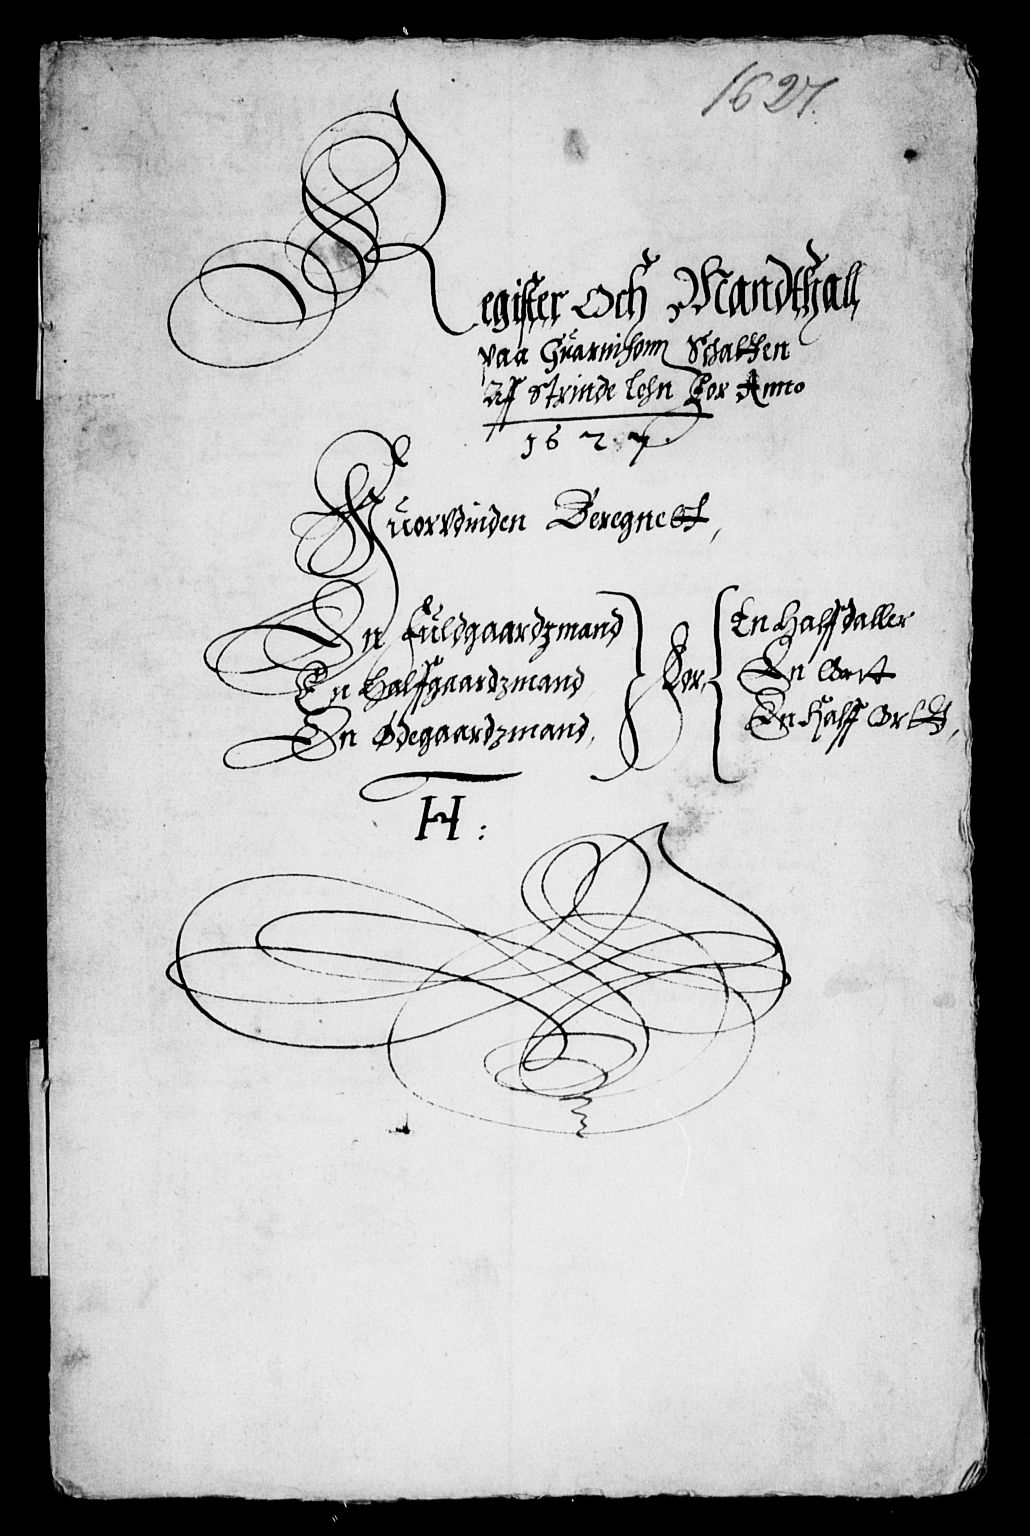 1627.
Register Och Mandthall
paa Guarnisonn Schatten
Aff Strinde lehn For Anno
1627.
Huorvdinden Beregnett,
En Fuldgaardzmand
En Halffgaardzmand
En Ødegaardzmand,
For,
En Halff daller
En Ortt
En Halff Ortt,
H: